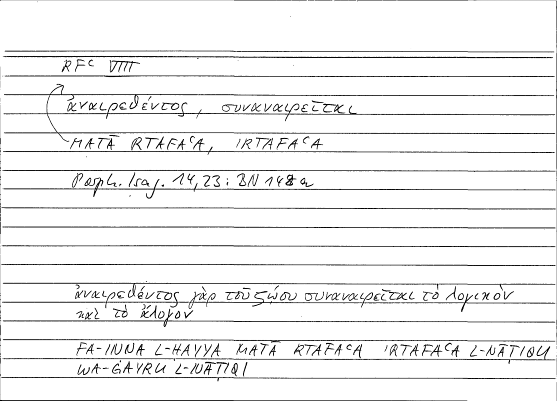 RFᶜ VIII
ἀναιρεθέντος, συναναιρεῖται
MATĀ RTAFAᶜA, IRTAFAᶜA
Porph. Isag. 14,23 : BN 148a
ἀναιρεθέντος γὰρ τοῦ ζῴου συναναιρεῖται τὸ λογικὸν
καὶ τὸ ἄλογον
FA-INNA L-ḤAYYA MATĀ RTAFAᶜA IRTAFAᶜA L-NĀṬIQU
WA-ĠAYRU L-NĀṬIQI